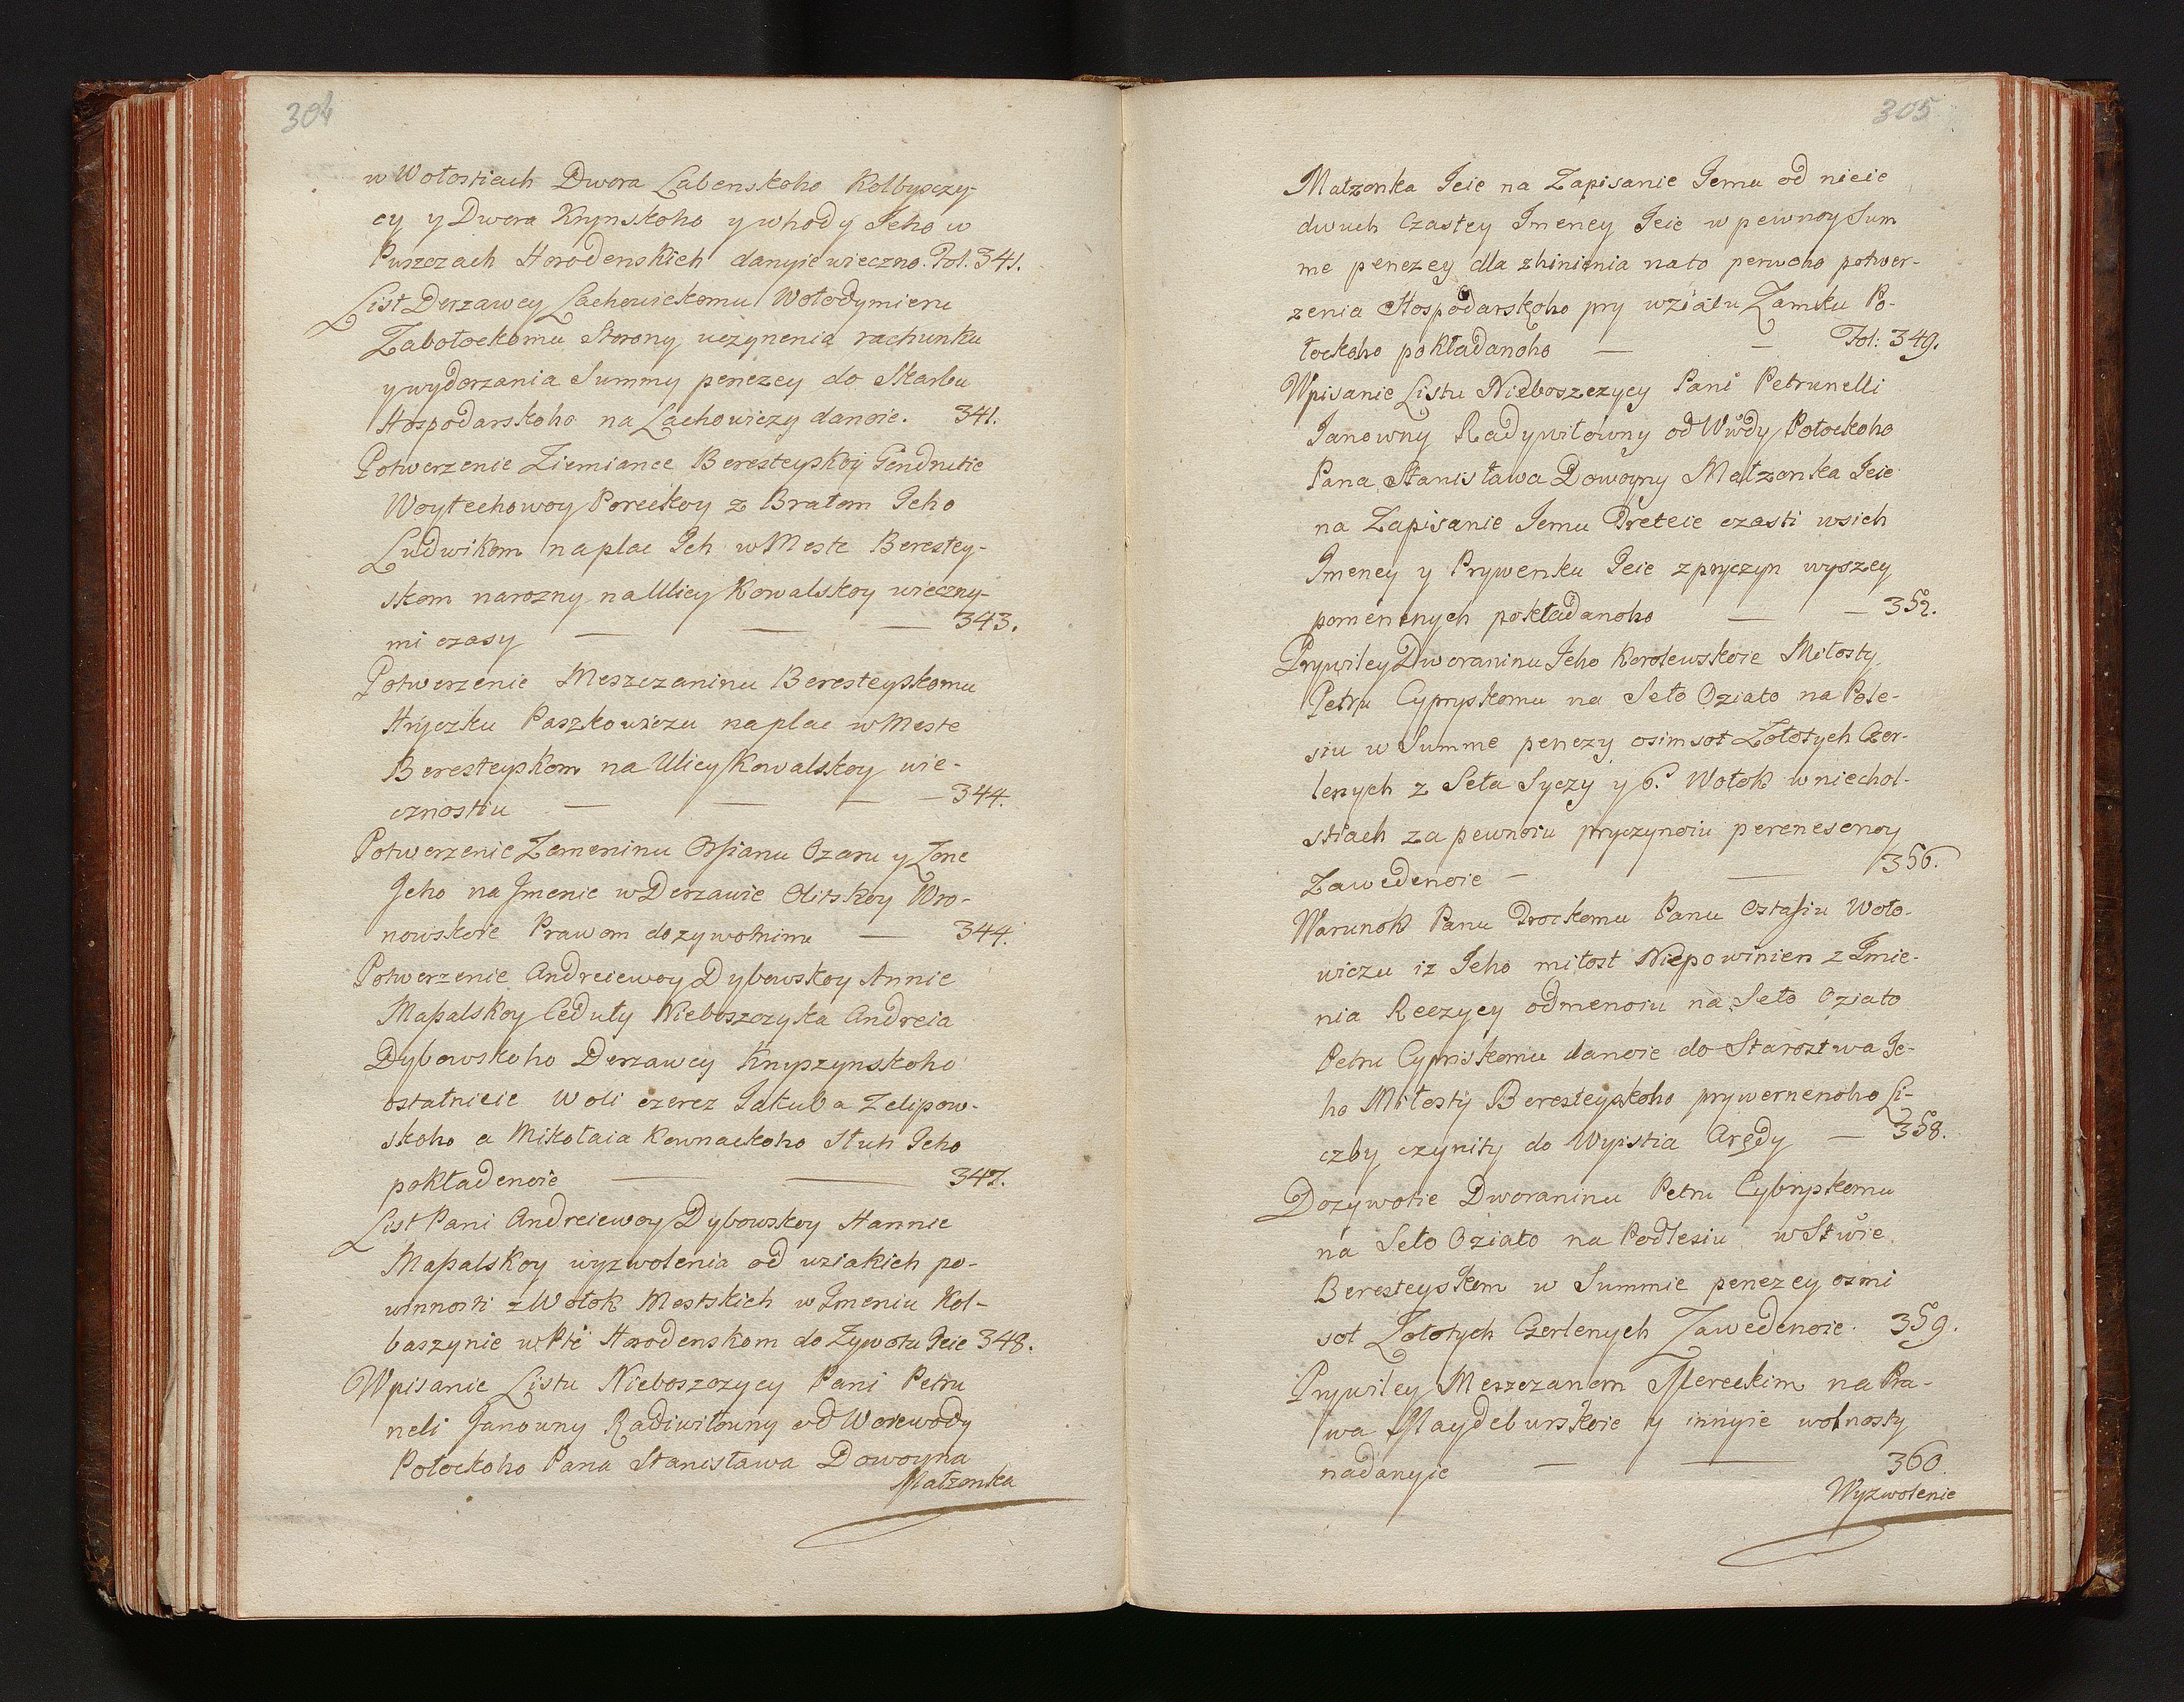 304
w Wołostiach Dwora Łabenskoho Kolbysczy-
cy y Dwora Krynskoho y whody Jeho w
Puszczach Horodenskich danyie wieczno. Fol. 341.
List Derzawcy Lachowickomu Wołodymieru
Zabołockomu Storony uczynenia rachunku
y wyderzania Summy penezey do Skarbu
Hospodarskoho na Lachowiczy danoie. 341.
Potwerzenie Ziemiance Beresteyskoy Gendrutie
Woytechowoy Poreckoy z Bratom Jeho
Ludwikom na plac Jch w Meste Berestey-
skom narozny na Ulicy Kowalskoy wieczny-
mi czasy — — — 343.
Potwerzenie Meszczaninu Beresteyskomu
Hryczku Paszkowiczu na plac w Meste
Beresteyskom na Ulicy Kowalskoy wie-
cznostiu — — — 344.
Potwerzenie Zemeninu Ossianu Ozaru y Zone
Jeho na Jmenie w Derzawie Olitskoy Wro-
nowskoie Prawom dozywotnimu — 344.
Potwerzenie Andreiewoy Dybowskoy Annie
Massalskoy Ceduły Nieboszczyka Andreia
Dybowskoho Derzawcy Knyszynskoho
ostatnieie Woli czerez Jakuba Zelipow-
skoho a Mikołaia Kownackoho Słuh Jeho
pokładenoie — — 347.
List Pani Andreiewoy Dybowskoy Hannie
Massalskoy wyzwolenia od wziakich po-
winnosti z Wołok Mestskich w Jmeniu Kol-
baszynie w Pte Horodenskom do Zywotu Jeie 348.
Wpisanie Listu Nieboszczycy Pani Petru
neli Janowny Radiwiłowny od Woiewody
Połockoho Pana Stanisława Dowoyna
Małzonka
305
Małzonka Jeie na Zapisanie Jemu od nieie
dwuch Czastey Jmeney Jeie w pewnoy Sum
me penezey dla zhinienia na to perwoho potwer-
zenia Hospodarskoho pry wziatu Zamku Po-
łockoho pokładanoho — — Fol: 349.
Wpisanie Listu Nieboszczycy Pani Petrunelli
Janowny Radywiłowny od Wwdy Połockoho
Pana Stanisława Dowoyny Małzonka Jeie
na Zapisanie Jemu Treteie czasti wsich
Jmeney y Prywenku Jeie z pryczyn wyszey
pomenenych pokładanoho — — 352.
Prywiley Dworaninu Jeho Korolewskoie Miłosty
Petru Cypryskomu na Seło Oziato na Pole-
siu w Summe penezy osimsot Zołotych Czer-
lenych z Seła Syczy y 6. Wołok w niechol-
stiach za pewnoiu pryczynoiu perenesenoy
Zawedenoie — — 356.
Warunok Panu Trockomu Panu Ostafiu Woło-
wiczu iz Jeho miłost Niepowinien z Jmie-
nia Reczycy odmenoiu na Seło Oziato
Petru Cypriskomu danoie do Starostwa Je-
ho Miłosty Beresteyskoho prywernenoho Li-
czby czynity do Wyistia Arędy — 358.
Dozywotie Dworaninu Petru Cybryskomu
na Seło Oziato na Podlesiu w Stwie
Beresteyskom w Summie penezey osmi
sot Zołotych Czerlenych Zawedenoie. 359.
Prywiley Meszczanom Mereckim na Pra-
wa Maydeburskoie y innyie wolnosty
nadanyie — — 360.
Wyzwolenie